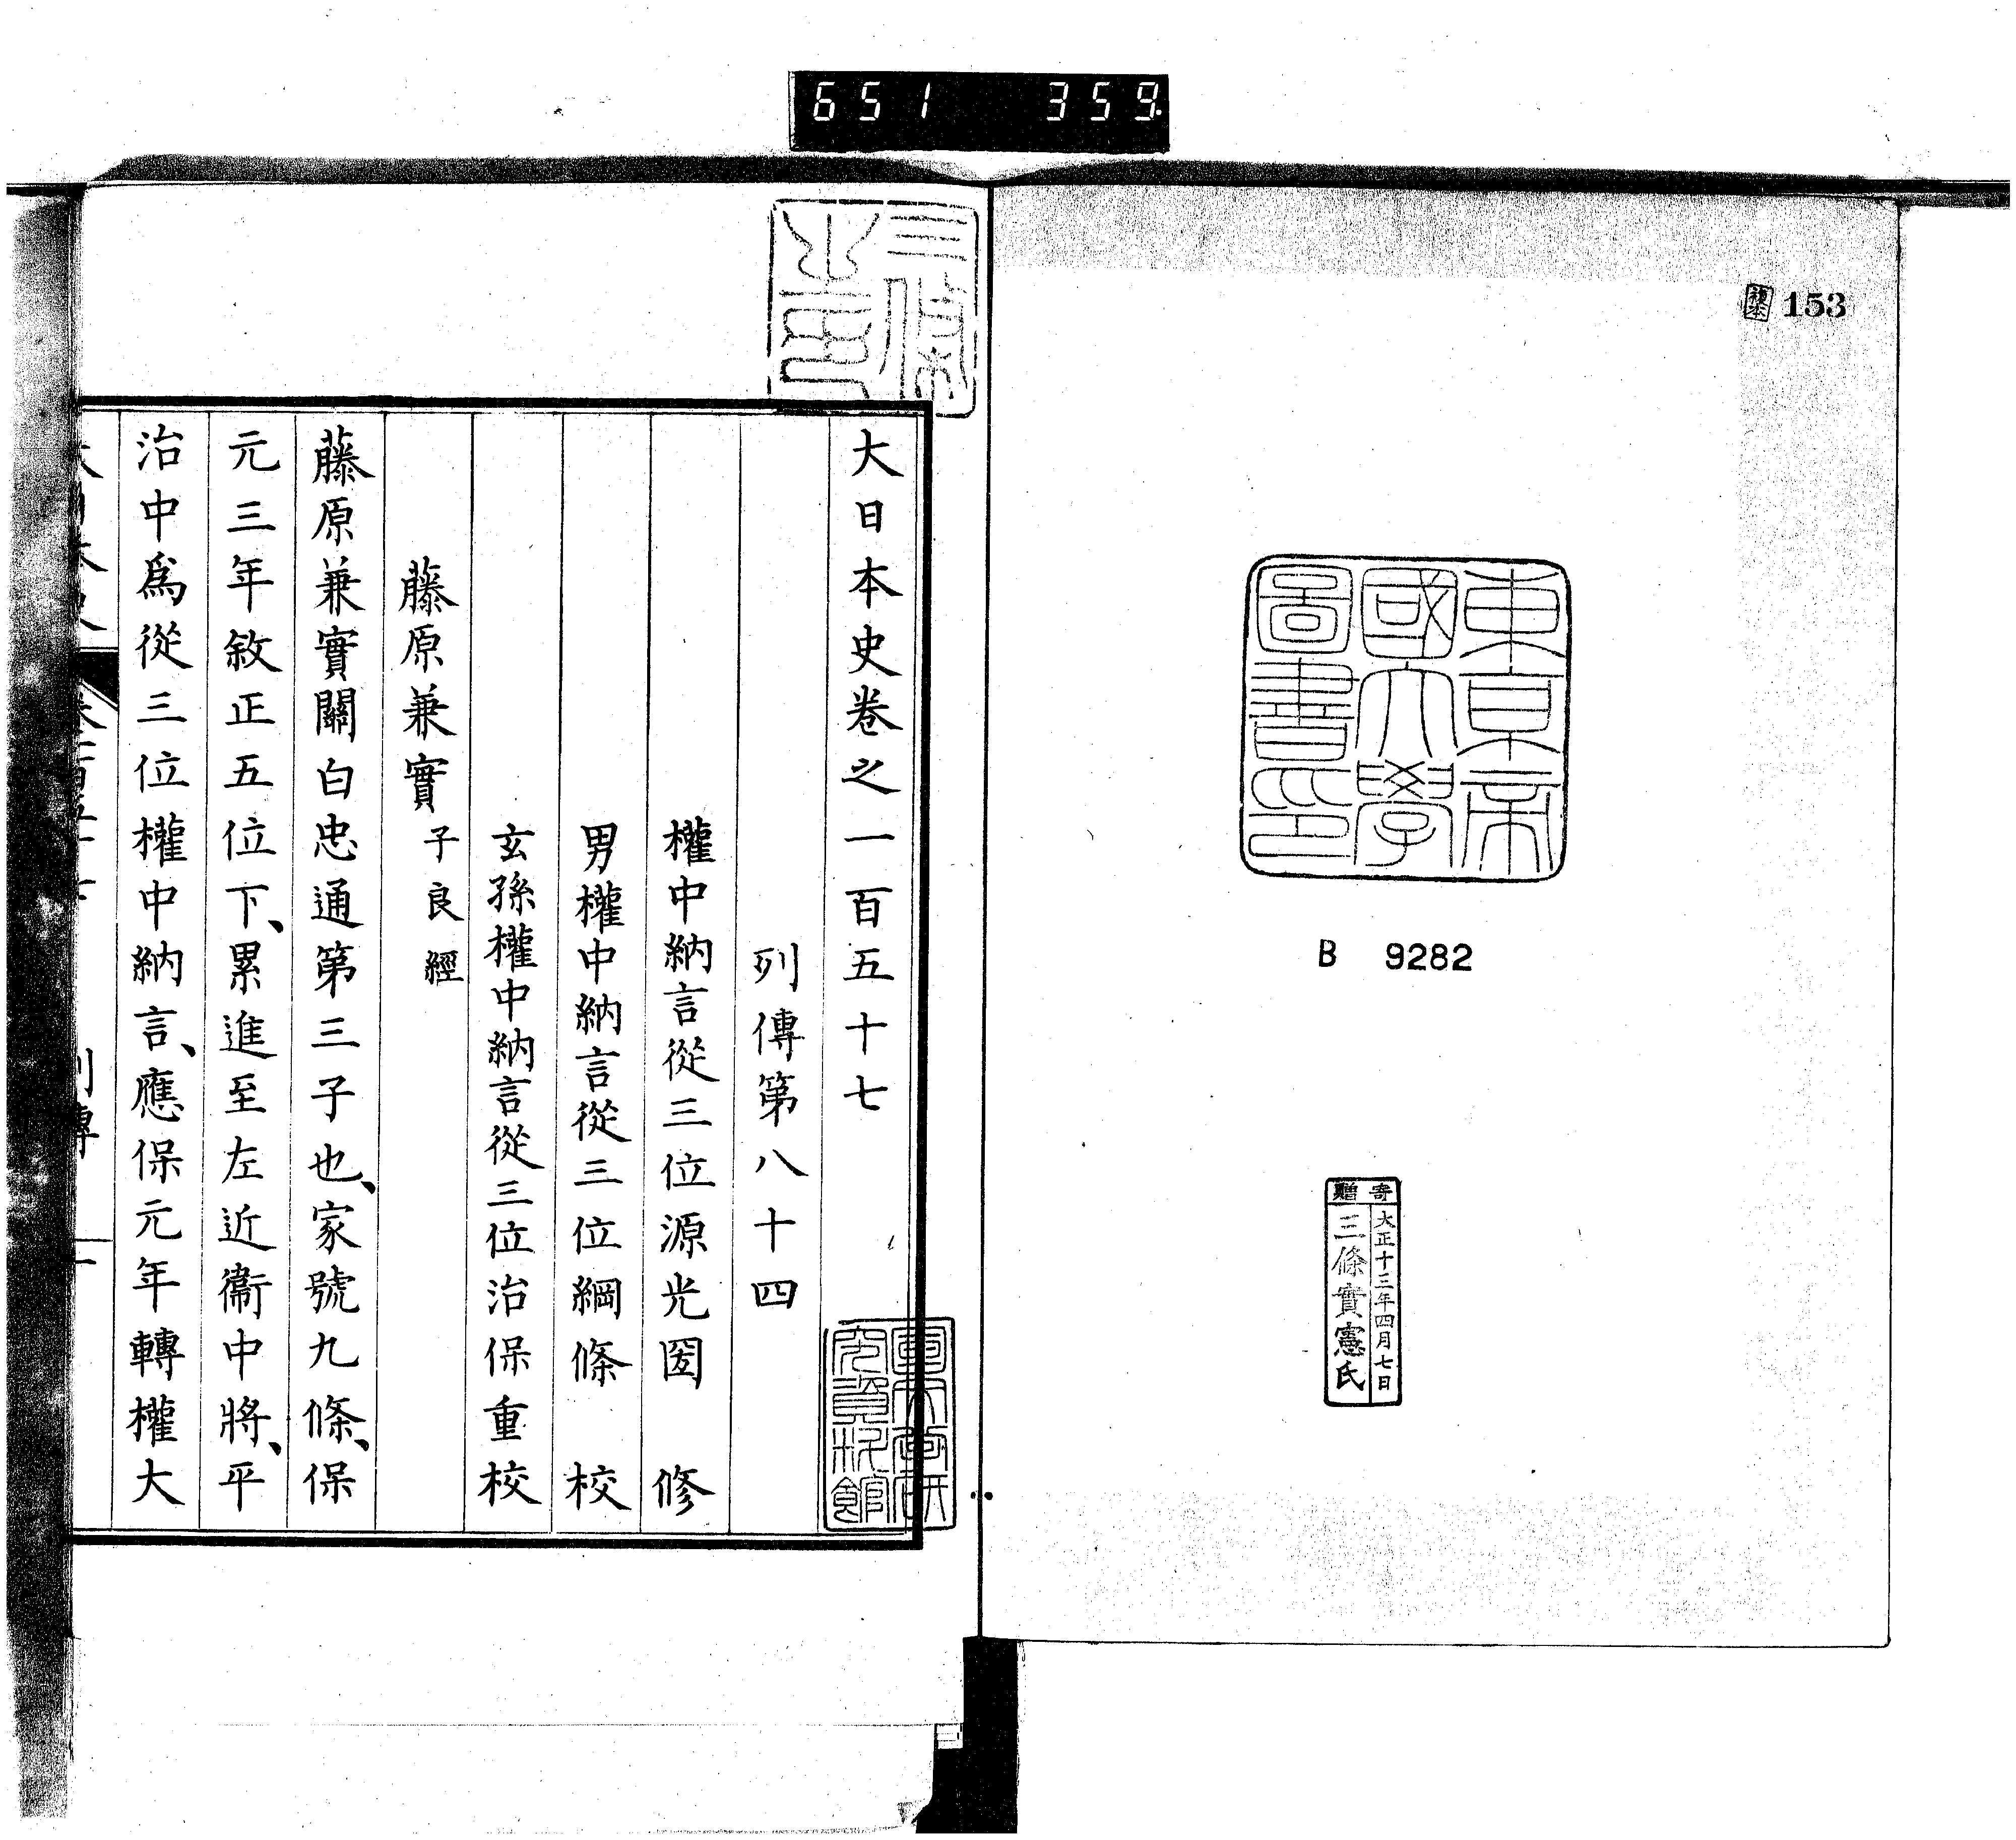 651 359
153
東京帝
國大學
圖書印
B 9282
寄贈
大正十三年四月七日
三條實憲氏
大日本史卷之一百五十七
列傳第八十四
權中納言從三位源光圀 修
男權中納言從三位綱條 校
玄孫權中納言從三位治保重校
藤原兼實 子良經
藤原兼實關白忠通第三子也、家號九條、保
元三年敘正五位下、累進至左近衞中將、平
治中爲從三位權中納言、應保元年轉權大